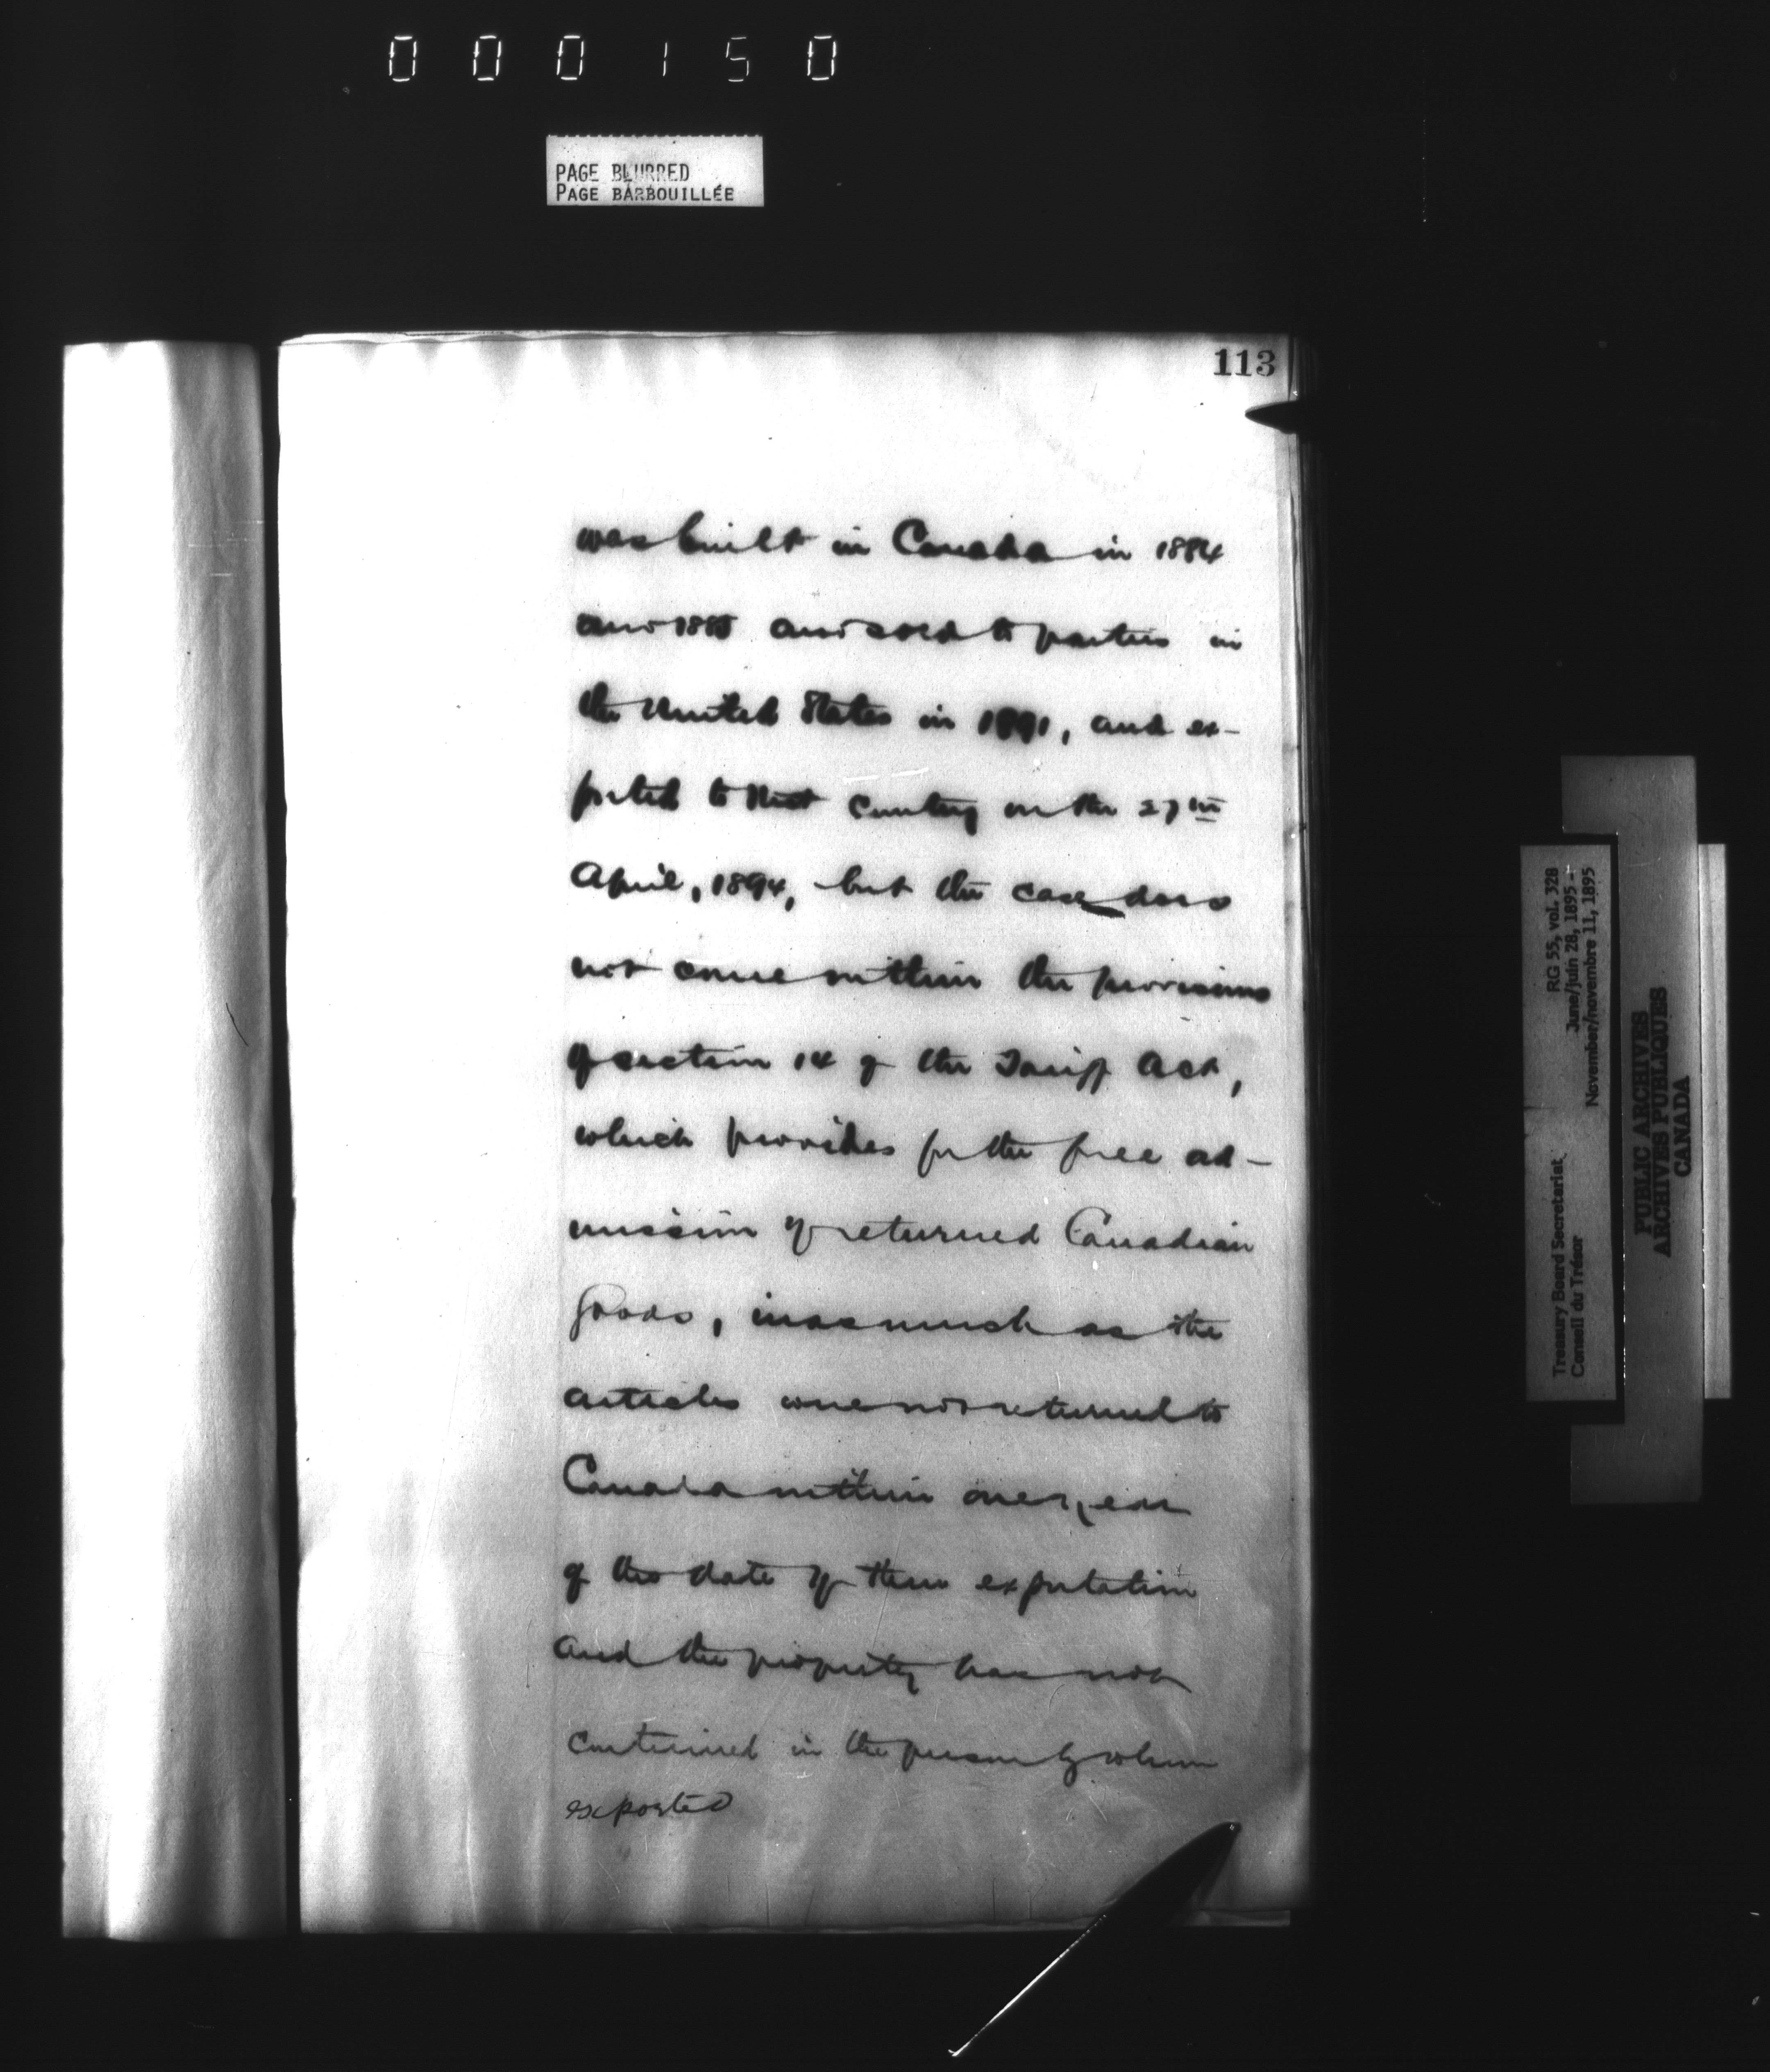 000150
PAGE BLURRED
PAGE BARBOUILLÉE
113
was built in Canada in 1884
and 1885 and sold to parties in
the United States in 1891, and ex-
ported to that country on the 27th
April, 1894, but the case does
not come within the provisions
of section 14 of the Tariff Act,
which provides for the free ad-
mission of returned Canadian
Goods, inasmuch as the
articles were not returned to
Canada within one year
of the date of their exportation
and the property has not
continued in the person by whom
exported
Treasury Board Secretariat RG 55, vol. 328
Conseil du Trésor June/juin 28, 1895 -
November/novembre 11, 1895
PUBLIC ARCHIVES
ARCHIVES PUBLIQUES
CANADA